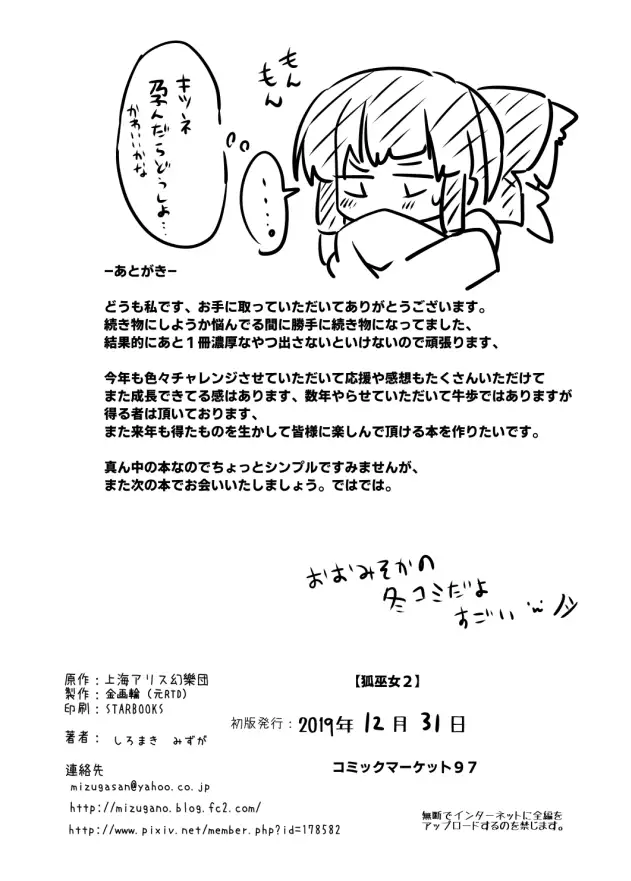 もんもん
キツネ
孕んだらどうしよ…
かわいいかな
・・・・。
ーあとがきー
どうも私です、お手に取っていただいてありがとうございます。
続き物にしようか悩んでる間に勝手に続き物になってました、
結果的にあと１冊濃厚なやつ出さないといけないので頑張ります、
今年も色々チャレンジさせていただいて応援や感想もたくさんいただけて
また成長できてる感はあります、数年やらせていただいて牛歩ではありますが
得る者は頂いております、
また来年も得たものを生かして皆様に楽しんで頂ける本を作りたいです。
真ん中の本なのでちょっとシンプルですみませんが、
また次の本でお会いいたしましょう。ではでは。
おおみそかの
冬コミだよ
すごい
原作：上海アリス幻樂団
製作：企画輪（元RTD）
印刷：STARBOOKS
著者： しろまき みずが
連絡先
mizugasan@yahoo.co.jp
http://mizugano.blog.fc2.com/
http://www.pixiv.net/member.php?id=178582
【狐巫女２】
初版発行：2019年 12月 31日
コミックマーケット９７
無断でインターネットに全編を
アップロードするのを禁じます。